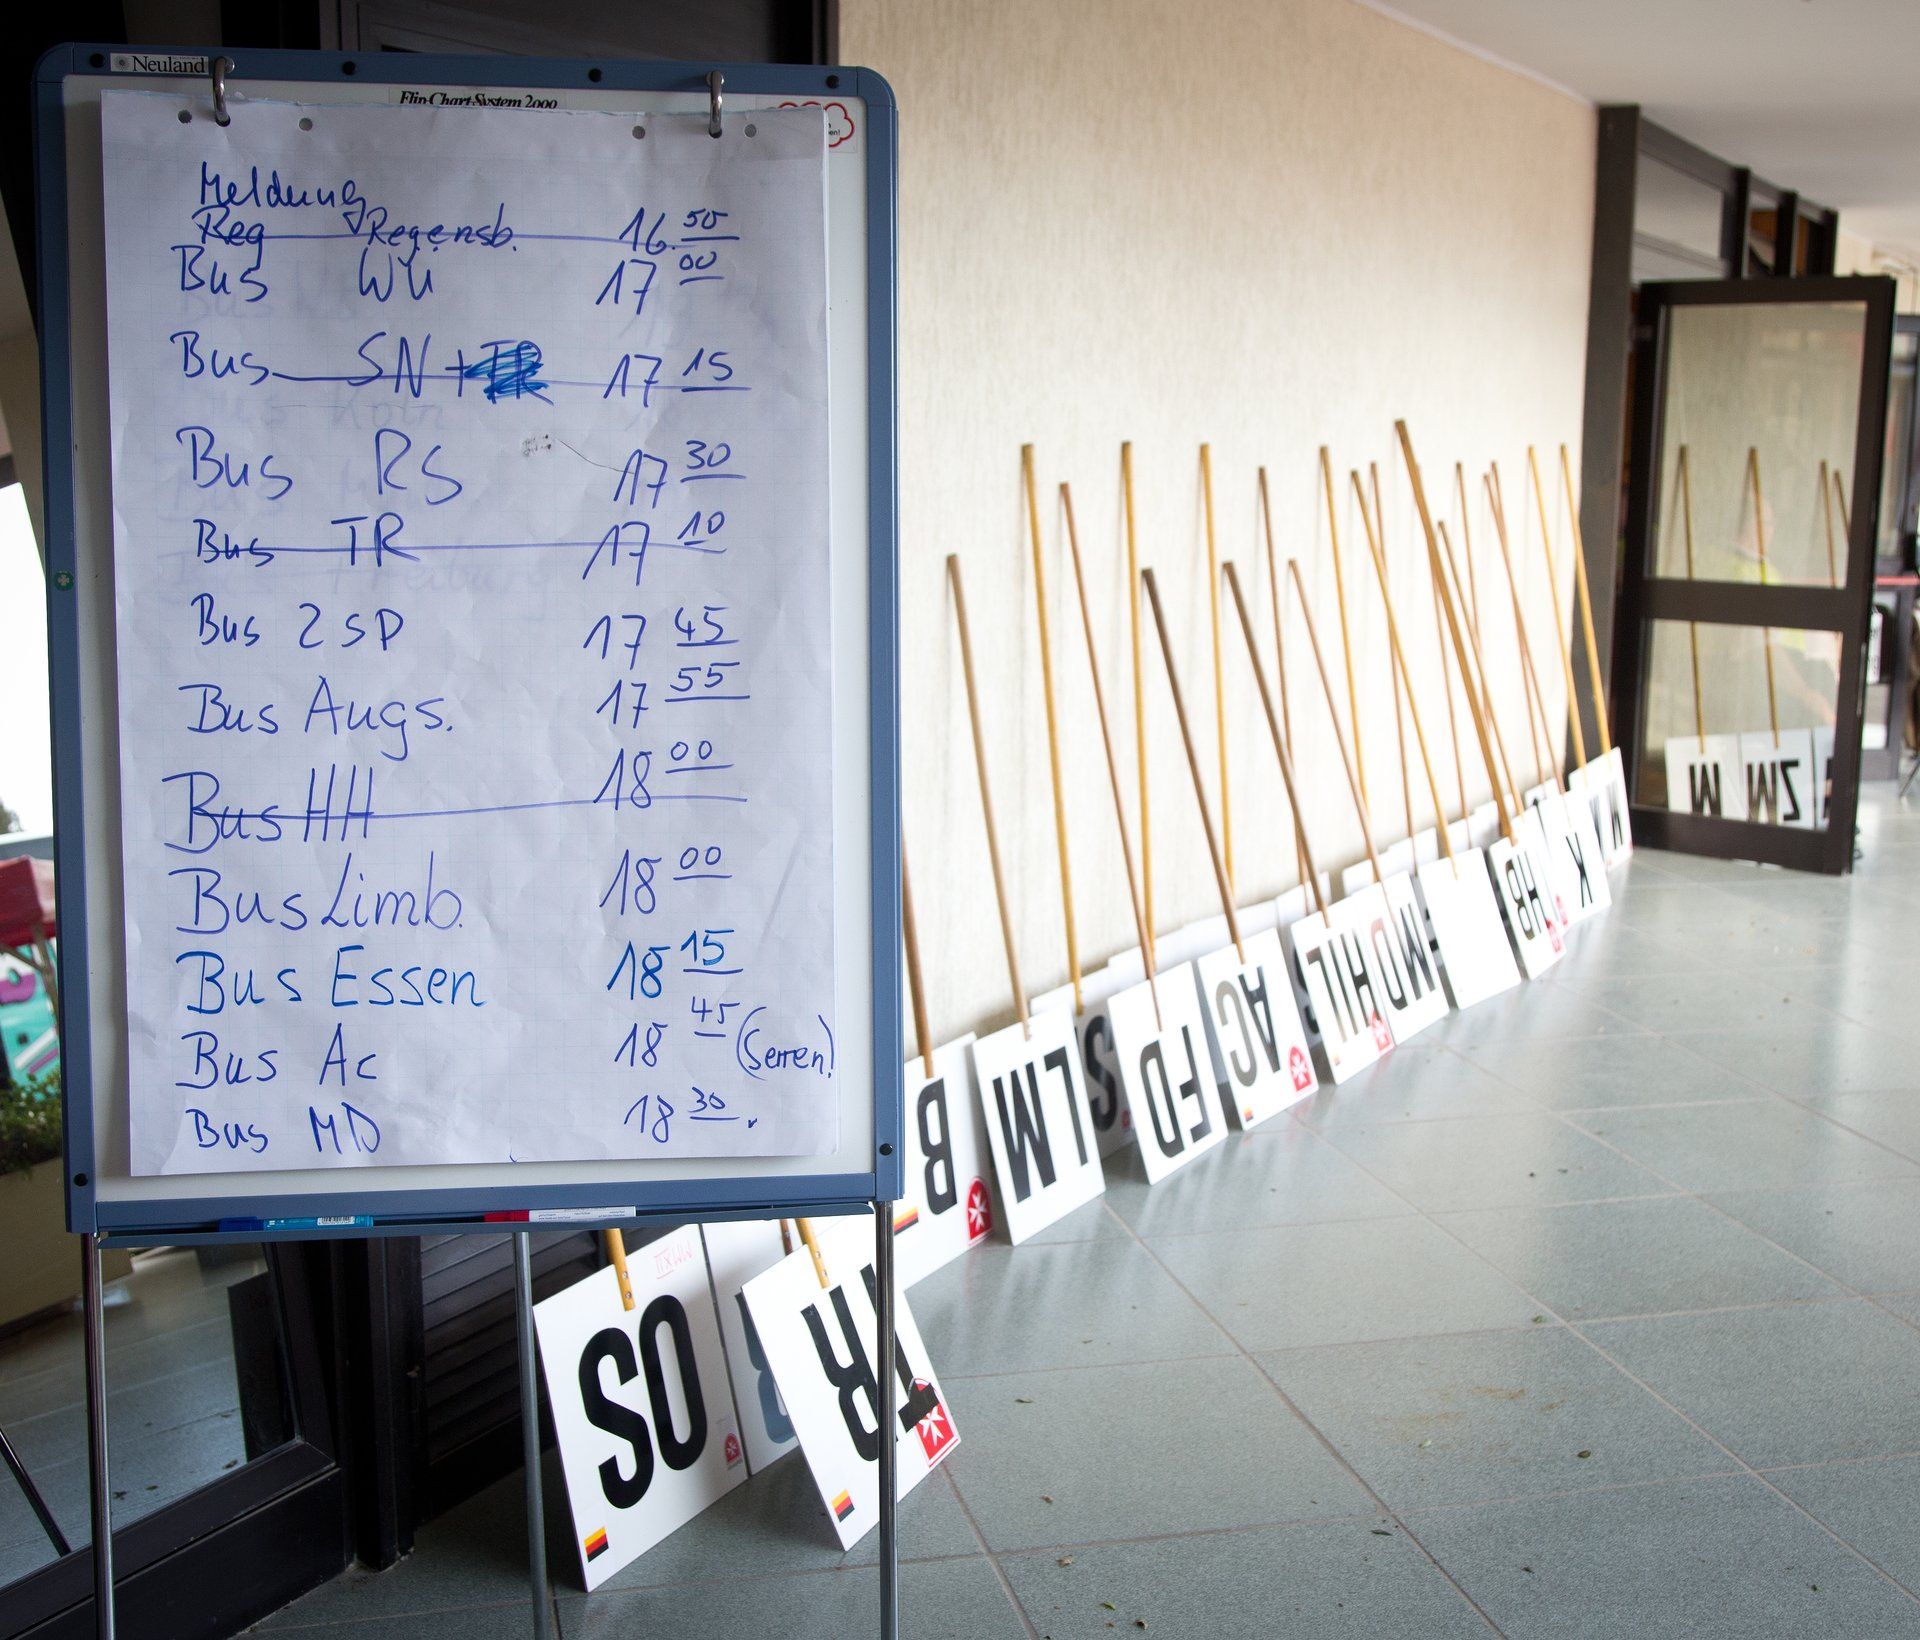 Neuland
Flip Chart System 2000
Meldung
Reg Regensb. 16.50
Bus WÜ 17 00
Bus SN + TR 17 15
Bus RS 17 30
Bus TR 17 10
Bus 2 SP 17 45
Bus Augs. 17 55
Bus HH 18 00
Bus Limb. 18 00
Bus Essen 18 15
Bus Ac 18 45
Bus MD 18 30.
B
LM
S
FD
AC
HIL
MD
HB
K
SO
TR